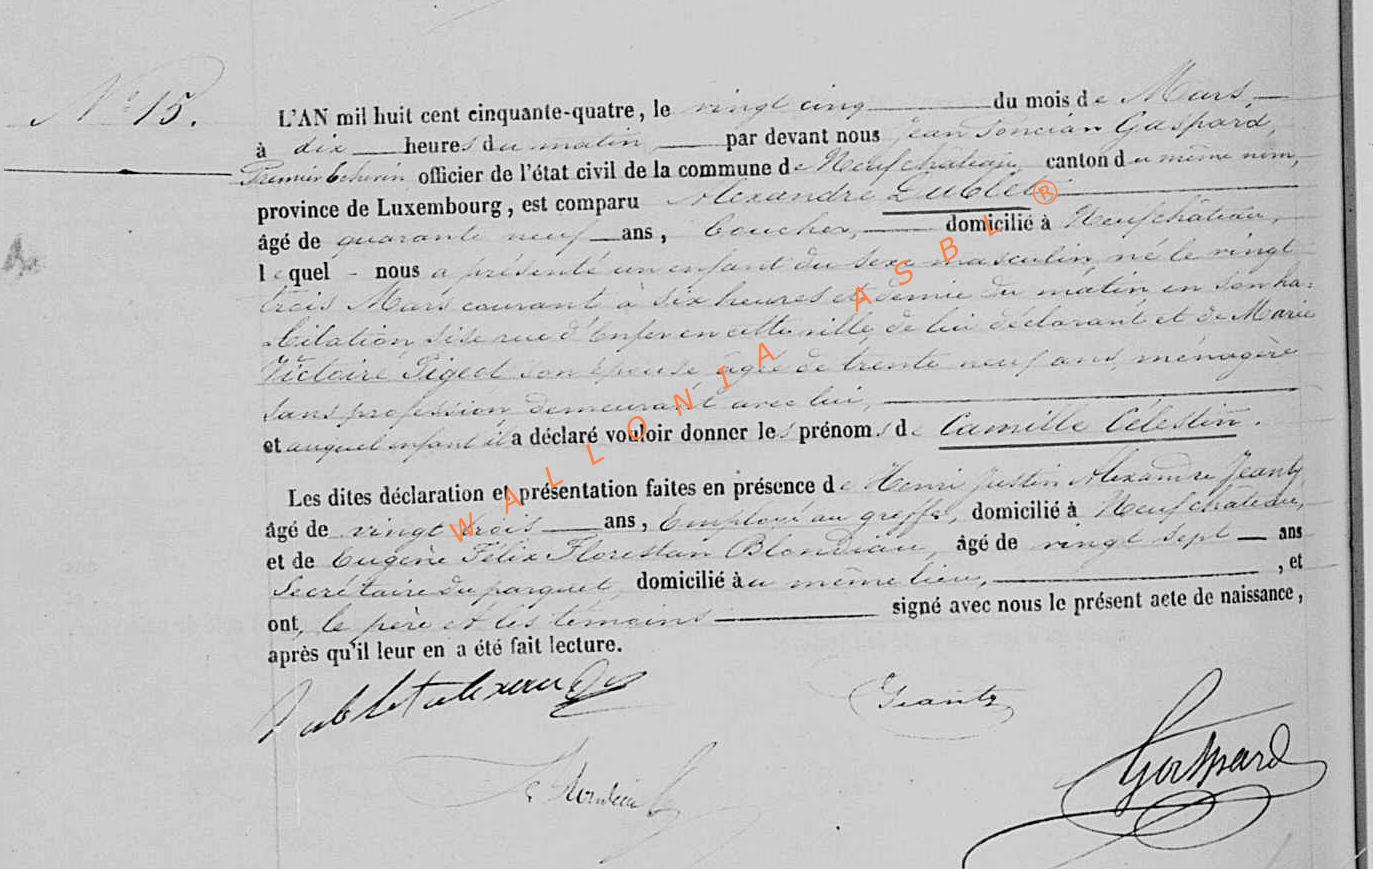 N° 15.
L'AN mil huit cent cinquante-quatre, le vingt cinq du mois de Mars,
à dix heures du matin, par devant nous Jean Poncian Gaspard,
Premier Echevin officier de l'état civil de la commune de Neufchâteau, canton du même nom,
province de Luxembourg, est comparu Alexandre Dublet
âgé de quarante neuf ans, boucher, domicilié à Neufchâteau,
lequel nous a présenté un enfant du sexe masculin, né le vingt
trois Mars courant à six heures et demie du matin en son ha=
bitation sise rue d'Enfer en cette ville, de lui déclarant et de Marie
Victoire Pigeot son épouse âgée de trente neuf ans, ménagère
sans profession demeurant avec lui,
et auquel enfant il a déclaré vouloir donner les prénoms de Camille Célestin.
Les dites déclaration et présentation faites en présence de Henri Justin Alexandre Jeanty
âgé de vingt trois ans, Employé au greffe, domicilié à Neufchâteau,
et de Eugène Félix Florestan Blondiau, âgé de vingt sept ans
Secrétaire du parquet, domicilié au même lieu, , et
ont, le père et les témoins signé avec nous le présent acte de naissance,
après qu'il leur en a été fait lecture.
Dublet alexandre
Jeanty
Blondiau
Gaspard
WALLONIA ASBL ®